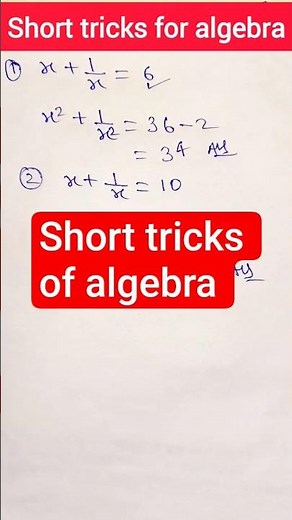 Short tricks for algebra
① x + 1/x = 6 ✓
x² + 1/x² = 36 - 2
= 34 Ans
② x + 1/x = 10
Short tricks
of algebra